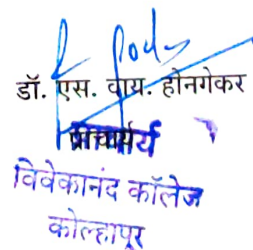 डॉ. एस. वाय. होनगेकर
प्राचार्य
विवेकानंद कॉलेज
कोल्हापूर